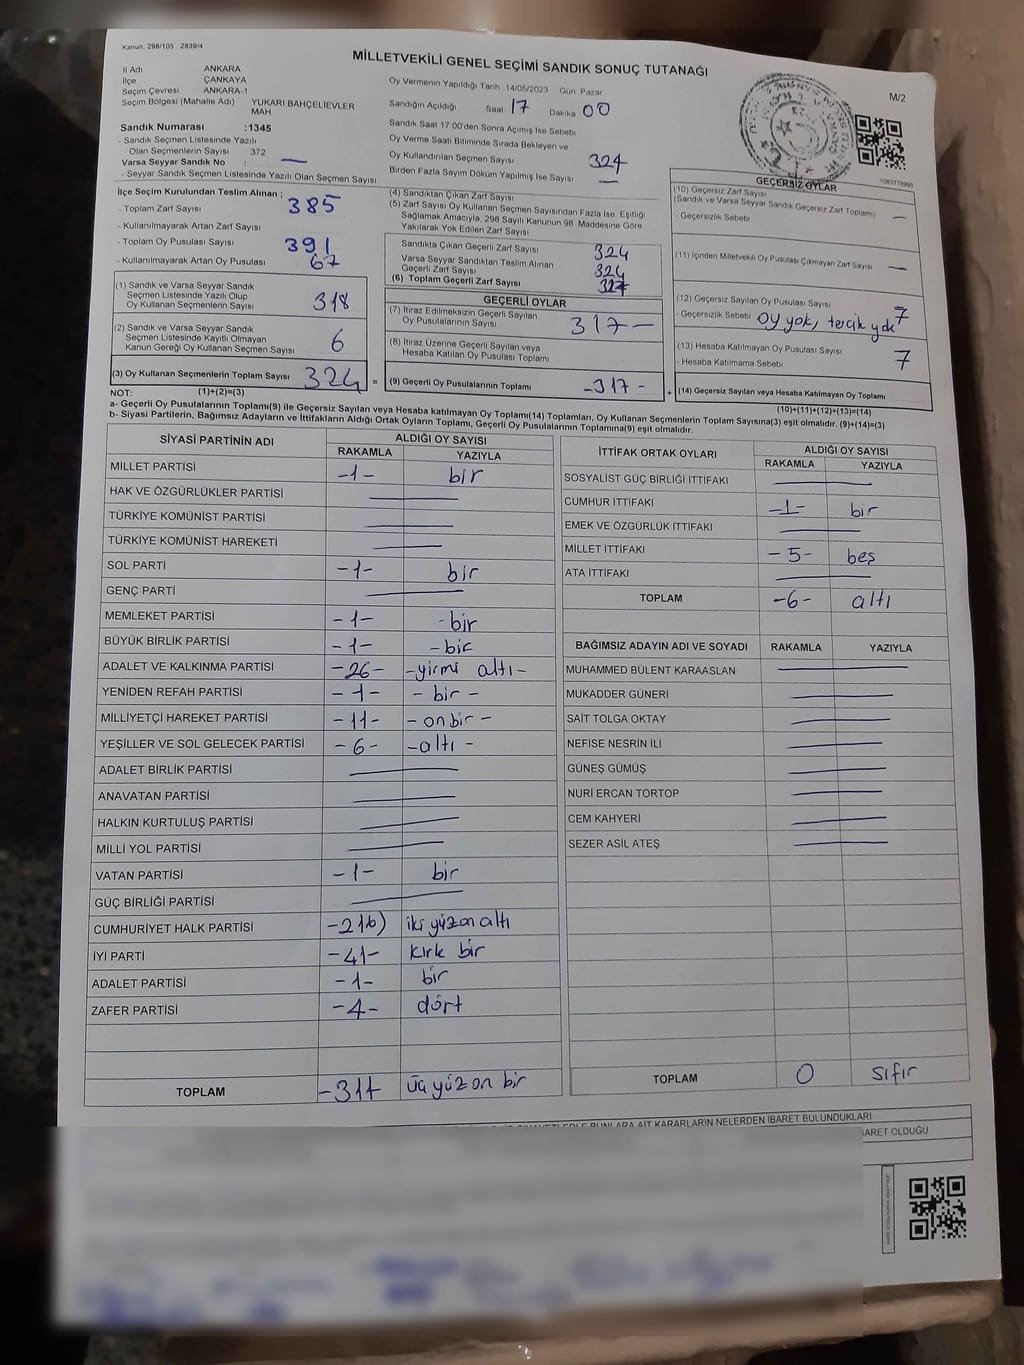 Kanun. 298/105 2839/4
MİLLETVEKİLİ GENEL SEÇİMİ SANDIK SONUÇ TUTANAĞI
M/2
İl Adı ANKARA
İlçe ÇANKAYA
Seçim Çevresi ANKARA-1
Seçim Bölgesi (Mahalle Adı) YUKARI BAHÇELİEVLER MAH
Sandık Numarası :1345
- Sandık Seçmen Listesinde Yazılı
Olan Seçmenlerin Sayısı 372
Varsa Seyyar Sandık No : —
- Seyyar Sandık Seçmen Listesinde Yazılı Olan Seçmen Sayısı
Oy Vermenin Yapıldığı Tarih 14/05/2023 Gün Pazar
Sandığın Açıldığı Saat 17 Dakika 00
Sandık Saat 17:00'den Sonra Açılmış İse Sebebi
Oy Verme Saati Bitiminde Sırada Bekleyen ve
Oy Kullandırılan Seçmen Sayısı 324
Birden Fazla Sayım Döküm Yapılmış İse Sayısı —
İlçe Seçim Kurulundan Teslim Alınan ;
- Toplam Zarf Sayısı 385
- Kullanılmayarak Artan Zarf Sayısı
- Toplam Oy Pusulası Sayısı 391
- Kullanılmayarak Artan Oy Pusulası 67
(1) Sandık ve Varsa Seyyar Sandık
Seçmen Listesinde Yazılı Olup
Oy Kullanan Seçmenlerin Sayısı 318
(2) Sandık ve Varsa Seyyar Sandık
Seçmen Listesinde Kayıtlı Olmayan
Kanun Gereği Oy Kullanan Seçmen Sayısı 6
(3) Oy Kullanan Seçmenlerin Toplam Sayısı 324 =
(1)+(2)=(3)
(4) Sandıktan Çıkan Zarf Sayısı
(5) Zarf Sayısı Oy Kullanan Seçmen Sayısından Fazla İse, Eşitliği
Sağlamak Amacıyla, 298 Sayılı Kanunun 98. Maddesine Göre
Yakılarak Yok Edilen Zarf Sayısı
Sandıkta Çıkan Geçerli Zarf Sayısı 324
Varsa Seyyar Sandıktan Teslim Alınan
Geçerli Zarf Sayısı 324
(6) Toplam Geçerli Zarf Sayısı
GEÇERLİ OYLAR
(7) İtiraz Edilmeksizin Geçerli Sayılan
Oy Pusulalarının Sayısı 317 —
(8) İtiraz Üzerine Geçerli Sayılan veya
Hesaba Katılan Oy Pusulası Toplamı
(9) Geçerli Oy Pusulalarının Toplamı - 317 - +
GEÇERSİZ OYLAR
(10) Geçersiz Zarf Sayısı
(Sandık ve Varsa Seyyar Sandık Geçersiz Zarf Toplamı) —
- Geçersizlik Sebebi
(11) İçinden Milletvekili Oy Pusulası Çıkmayan Zarf Sayısı —
(12) Geçersiz Sayılan Oy Pusulası Sayısı 7
- Geçersizlik Sebebi oy yok, tercih yok
(13) Hesaba Katılmayan Oy Pusulası Sayısı 7
- Hesaba Katılmama Sebebi
(14) Geçersiz Sayılan veya Hesaba Katılmayan Oy Toplamı
(10)+(11)+(12)+(13)=(14)
NOT:
a- Geçerli Oy Pusulalarının Toplamı(9) ile Geçersiz Sayılan veya Hesaba katılmayan Oy Toplamı(14) Toplamları, Oy Kullanan Seçmenlerin Toplam Sayısına(3) eşit olmalıdır. (9)+(14)=(3)
b- Siyasi Partilerin, Bağımsız Adayların ve İttifakların Aldığı Ortak Oyların Toplamı, Geçerli Oy Pusulalarının Toplamına(9) eşit olmalıdır.
SİYASİ PARTİNİN ADI ALDIĞI OY SAYISI
RAKAMLA YAZIYLA
MİLLET PARTİSİ -1- bir
HAK VE ÖZGÜRLÜKLER PARTİSİ —
TÜRKİYE KOMÜNİST PARTİSİ —
TÜRKİYE KOMÜNİST HAREKETİ —
SOL PARTİ -1- bir
GENÇ PARTİ —
MEMLEKET PARTİSİ -1- -bir
BÜYÜK BİRLİK PARTİSİ -1- -bir
ADALET VE KALKINMA PARTİSİ -26- -yirmi altı-
YENİDEN REFAH PARTİSİ -1- -bir-
MİLLİYETÇİ HAREKET PARTİSİ -11- -onbir-
YEŞİLLER VE SOL GELECEK PARTİSİ -6- -altı-
ADALET BİRLİK PARTİSİ —
ANAVATAN PARTİSİ —
HALKIN KURTULUŞ PARTİSİ —
MİLLİ YOL PARTİSİ —
VATAN PARTİSİ -1- bir
GÜÇ BİRLİĞİ PARTİSİ —
CUMHURİYET HALK PARTİSİ -216) iki yüz on altı
İYİ PARTİ -41- kırk bir
ADALET PARTİSİ -1- bir
ZAFER PARTİSİ -4- dört
TOPLAM -311 üç yüz on bir
İTTİFAK ORTAK OYLARI ALDIĞI OY SAYISI
RAKAMLA YAZIYLA
SOSYALİST GÜÇ BİRLİĞİ İTTİFAKI —
CUMHUR İTTİFAKI -1- bir
EMEK VE ÖZGÜRLÜK İTTİFAKI —
MİLLET İTTİFAKI -5- beş
ATA İTTİFAKI —
TOPLAM -6- altı
BAĞIMSIZ ADAYIN ADI VE SOYADI RAKAMLA YAZIYLA
MUHAMMED BÜLENT KARAASLAN —
MUKADDER GÜNERİ —
SAİT TOLGA OKTAY —
NEFİSE NESRİN İLİ —
GÜNEŞ GÜMÜŞ —
NURİ ERCAN TORTOP —
CEM KAHYERİ —
SEZER ASİL ATEŞ —
TOPLAM 0 sıfır
BUNLARA AİT KARARLARIN NELERDEN İBARET BULUNDUKLARI
İBARET OLDUĞU